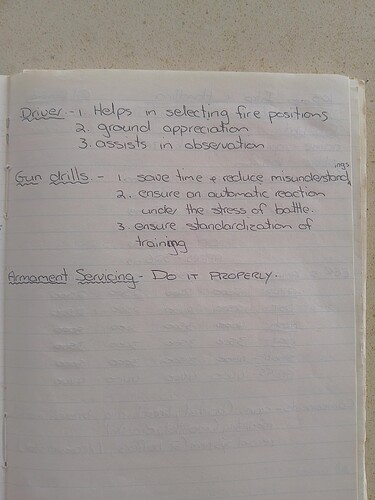 Driver - 1. Helps in selecting fire positions
2. ground appreciation
3. assists in observation
Gun drills - 1. save time & reduce misunderstandings
2. ensure an automatic reaction
under the stress of battle.
3. ensure standardization of
training
Armament Servicing - DO IT PROPERLY.